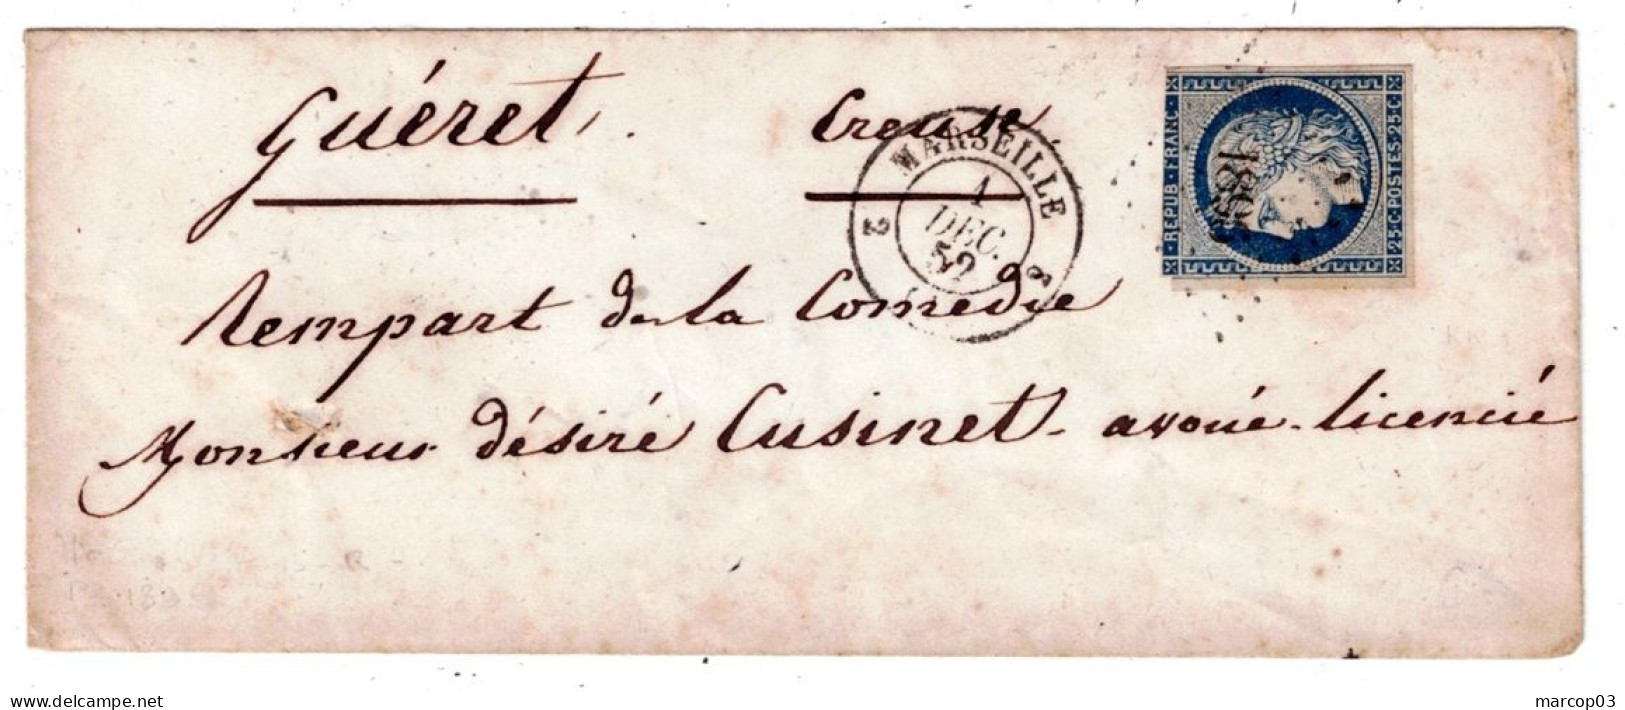 Guéret, Creuse,
MARSEILLE
1
DEC.
52
REPUB·FRANC·
25·C·POSTES·25·C
1896
Rempart de la Comedie
Monsieur désiré Cusinet - avoué - licencié
marcop03